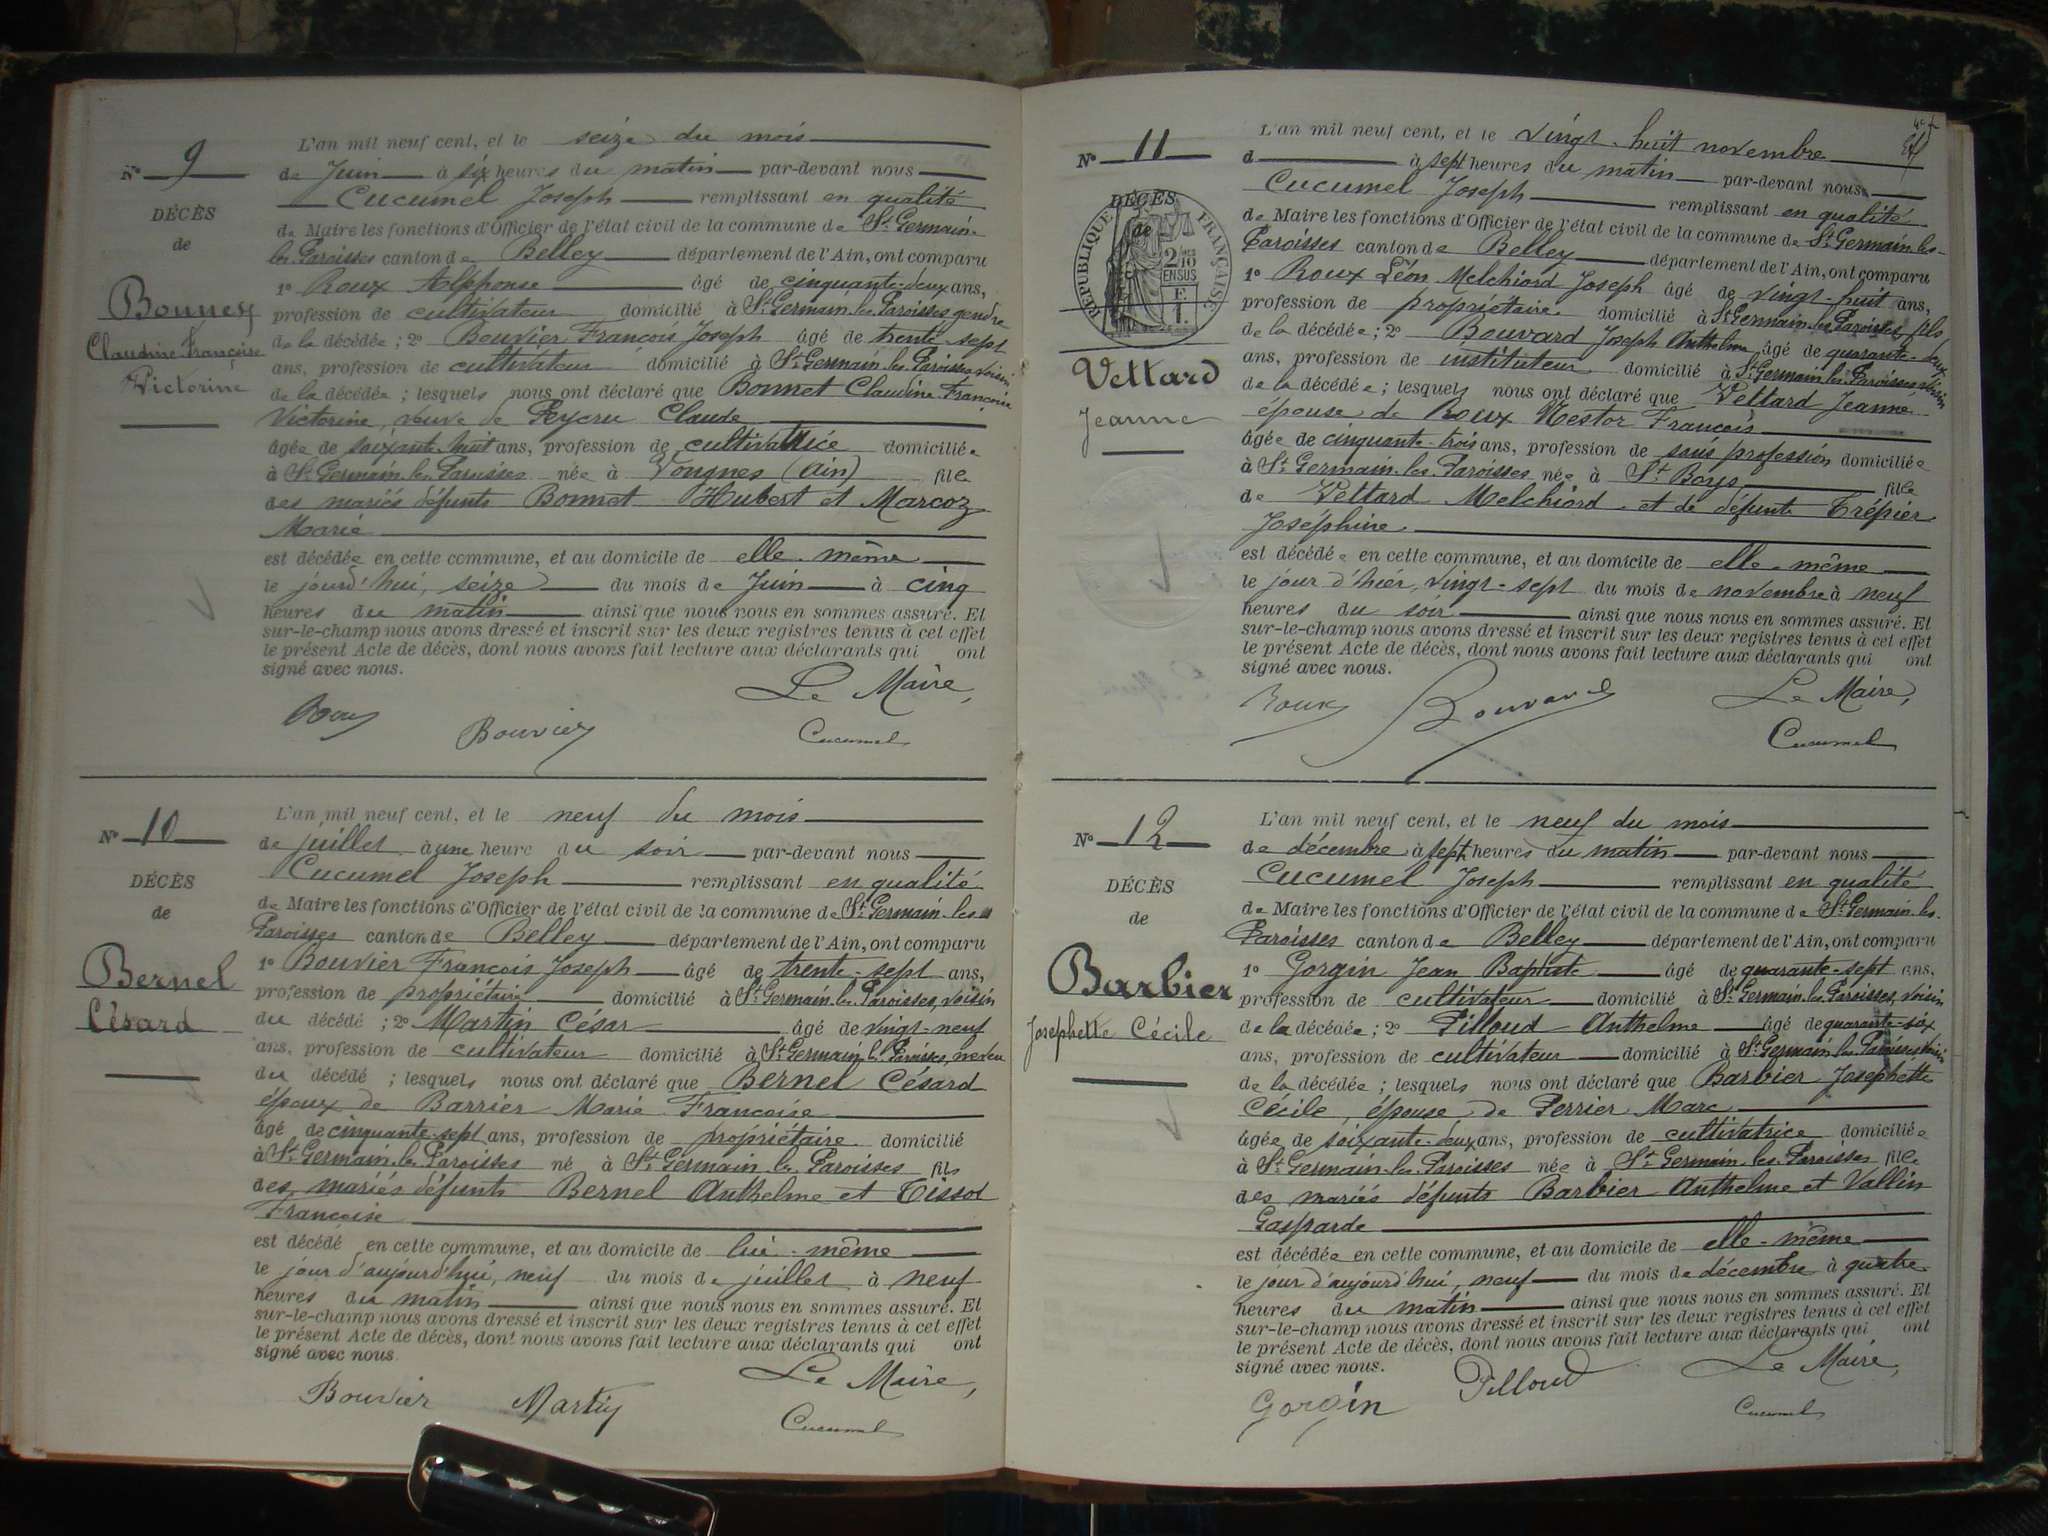 L'an mil neuf cent, et le seize du mois
N° 9
de Juin à six heures du matin par-devant nous
Cucumel Joseph remplissant en qualité
DÉCÈS
de Maire les fonctions d'Officier de l'état civil de la commune de St Germain-
de
les Paroisses canton de Belley département de l'Ain, ont comparu
1° Roux Alphonse âgé de cinquante-deux ans,
Bonnet
profession de cultivateur domicilié à St Germain les Paroisses gendre
Claudine Françoise
de la décédée ; 2° Bouvier François Joseph âgé de trente-sept
Victorine
ans, profession de cultivateur domicilié à St Germain les Paroisses voisin
de la décédée ; lesquels nous ont déclaré que Bonnet Claudine Françoise
Victorine, veuve de Peycru Claude
âgée de soixante-huit ans, profession de cultivatrice domiciliée
à St Germain les Paroisses née à Vongnes (Ain) fille
des mariés défunts Bonnet Hubert et Marcoz
Marie
est décédée en cette commune, et au domicile de elle-même
le jourd'hui, seize du mois de Juin à cinq
heures du matin ainsi que nous nous en sommes assuré. Et
sur-le-champ nous avons dressé et inscrit sur les deux registres tenus à cet effet
le présent Acte de décès, dont nous avons fait lecture aux déclarants qui ont
signé avec nous.
Le Maire,
Roux Bouvier Cucumel
L'an mil neuf cent, et le neuf du mois
N° 10
de juillet à une heure du soir par-devant nous
Cucumel Joseph remplissant en qualité
DÉCÈS
de Maire les fonctions d'Officier de l'état civil de la commune de St Germain-les
de
Paroisses canton de Belley département de l'Ain, ont comparu
1° Bouvier François Joseph âgé de trente-sept ans,
Bernel
profession de propriétaire domicilié à St Germain les Paroisses, voisin
Césard
du décédé ; 2° Martin César âgé de vingt-neuf
ans, profession de cultivateur domicilié à St Germain les Paroisses, neveu
du décédé ; lesquels nous ont déclaré que Bernel Césard
époux de Barrier Marie Françoise
âgé de cinquante-sept ans, profession de propriétaire domicilié
à St Germain les Paroisses né à St Germain les Paroisses fils
des mariés défunts Bernel Anthelme et Tissot
Françoise
est décédé en cette commune, et au domicile de lui-même
le jour d'aujourd'hui, neuf du mois de juillet à neuf
heures du matin ainsi que nous nous en sommes assuré. Et
sur-le-champ nous avons dressé et inscrit sur les deux registres tenus à cet effet
le présent Acte de décès, dont nous avons fait lecture aux déclarants qui ont
signé avec nous.
Le Maire,
Bouvier Martin Cucumel
L'an mil neuf cent, et le vingt-huit novembre
N° 11
d à sept heures du matin par-devant nous
Cucumel Joseph remplissant en qualité
DÉCÈS
de
RÉPUBLIQUE FRANÇAISE
2/10 EN SUS
de Maire les fonctions d'Officier de l'état civil de la commune de St Germain-les-
Paroisses canton de Belley département de l'Ain, ont comparu
1° Roux Léon Melchiord Joseph âgé de vingt-huit ans,
profession de propriétaire domicilié à St Germain les Paroisses fils
de la décédée ; 2° Bouvard Joseph Anthelme âgé de quarante-deux
Vettard
ans, profession de instituteur domicilié à St Germain les Paroisses, voisin
Jeanne
de la décédée ; lesquels nous ont déclaré que Vettard Jeanne
épouse de Roux Nestor François
âgée de cinquante-trois ans, profession de sans profession domiciliée
à St Germain-les-Paroisses née à St Boys fille
de Vettard Melchiord et de défunte Trépier
Joséphine
est décédée en cette commune, et au domicile de elle-même
le jour d'hier, vingt-sept du mois de novembre à neuf
heures du soir ainsi que nous nous en sommes assuré. Et
sur-le-champ nous avons dressé et inscrit sur les deux registres tenus à cet effet
le présent Acte de décès, dont nous avons fait lecture aux déclarants qui ont
signé avec nous.
Le Maire,
Roux Bouvard Cucumel
L'an mil neuf cent, et le neuf du mois
N° 12
de décembre à sept heures du matin par-devant nous
Cucumel Joseph remplissant en qualité
DÉCÈS
de Maire les fonctions d'Officier de l'état civil de la commune de St Germain-les-
de
Paroisses canton de Belley département de l'Ain, ont comparu
1° Gorgin Jean Baptiste âgé de quarante-sept ans,
Barbier
profession de cultivateur domicilié à St Germain les Paroisses, voisin
Josephette Cécile
de la décédée ; 2° Pilloud Anthelme âgé de quarante-six
ans, profession de cultivateur domicilié à St Germain les Paroisses, voisin
de la décédée ; lesquels nous ont déclaré que Barbier Josephette
Cécile, épouse de Perrier Marc
âgée de soixante-deux ans, profession de cultivatrice domiciliée
à St Germain les Paroisses née à St Germain les Paroisses fille
des mariés défunts Barbier Anthelme et Vallin
Gasparde
est décédée en cette commune, et au domicile de elle-même
le jour d'aujourd'hui, neuf du mois de décembre à quatre
heures du matin ainsi que nous nous en sommes assuré. Et
sur-le-champ nous avons dressé et inscrit sur les deux registres tenus à cet effet
le présent Acte de décès, dont nous avons fait lecture aux déclarants qui ont
signé avec nous.
Le Maire,
Gorgin Pilloud Cucumel